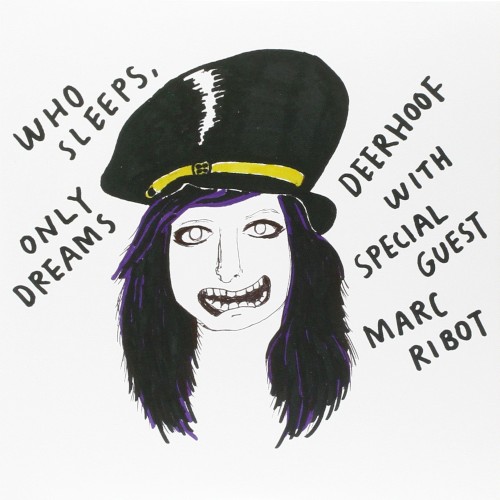 WHO
SLEEPS,
ONLY
DREAMS
DEERHOOF
WITH
SPECIAL
GUEST
MARC
RIBOT